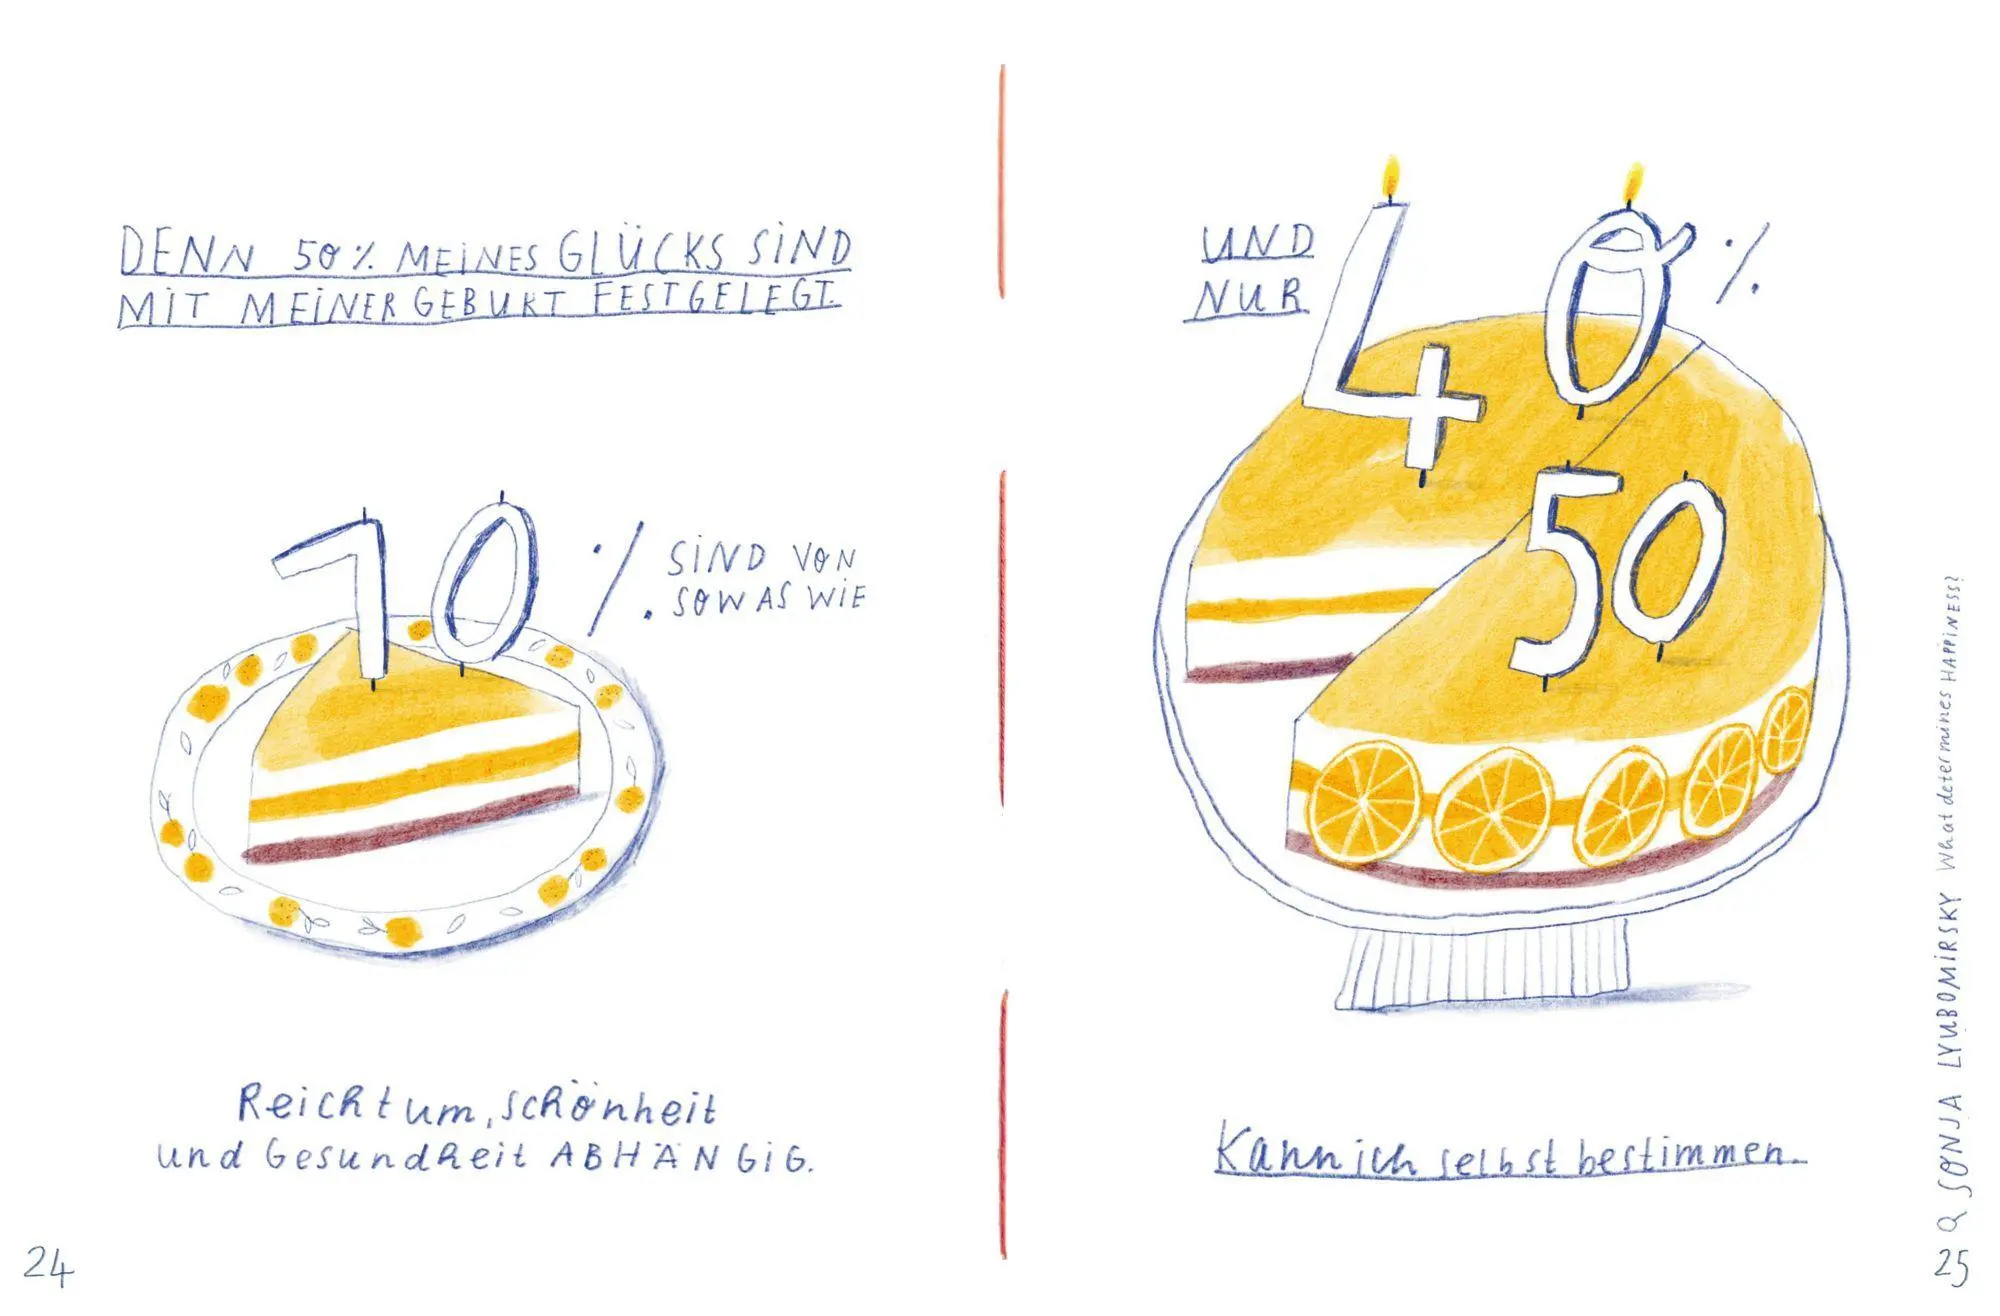 DENN 50% MEINES GLÜCKS SIND
MIT MEINER GEBURT FESTGELEGT.
10 % SIND VON
SOWAS WIE
Reichtum, schönheit
und Gesundheit ABHÄNGIG.
24
UND
NUR
40 %
50
Kann ich selbst bestimmen.
Q SONJA LYUBOMIRSKY What determines HAPPINESS?
25